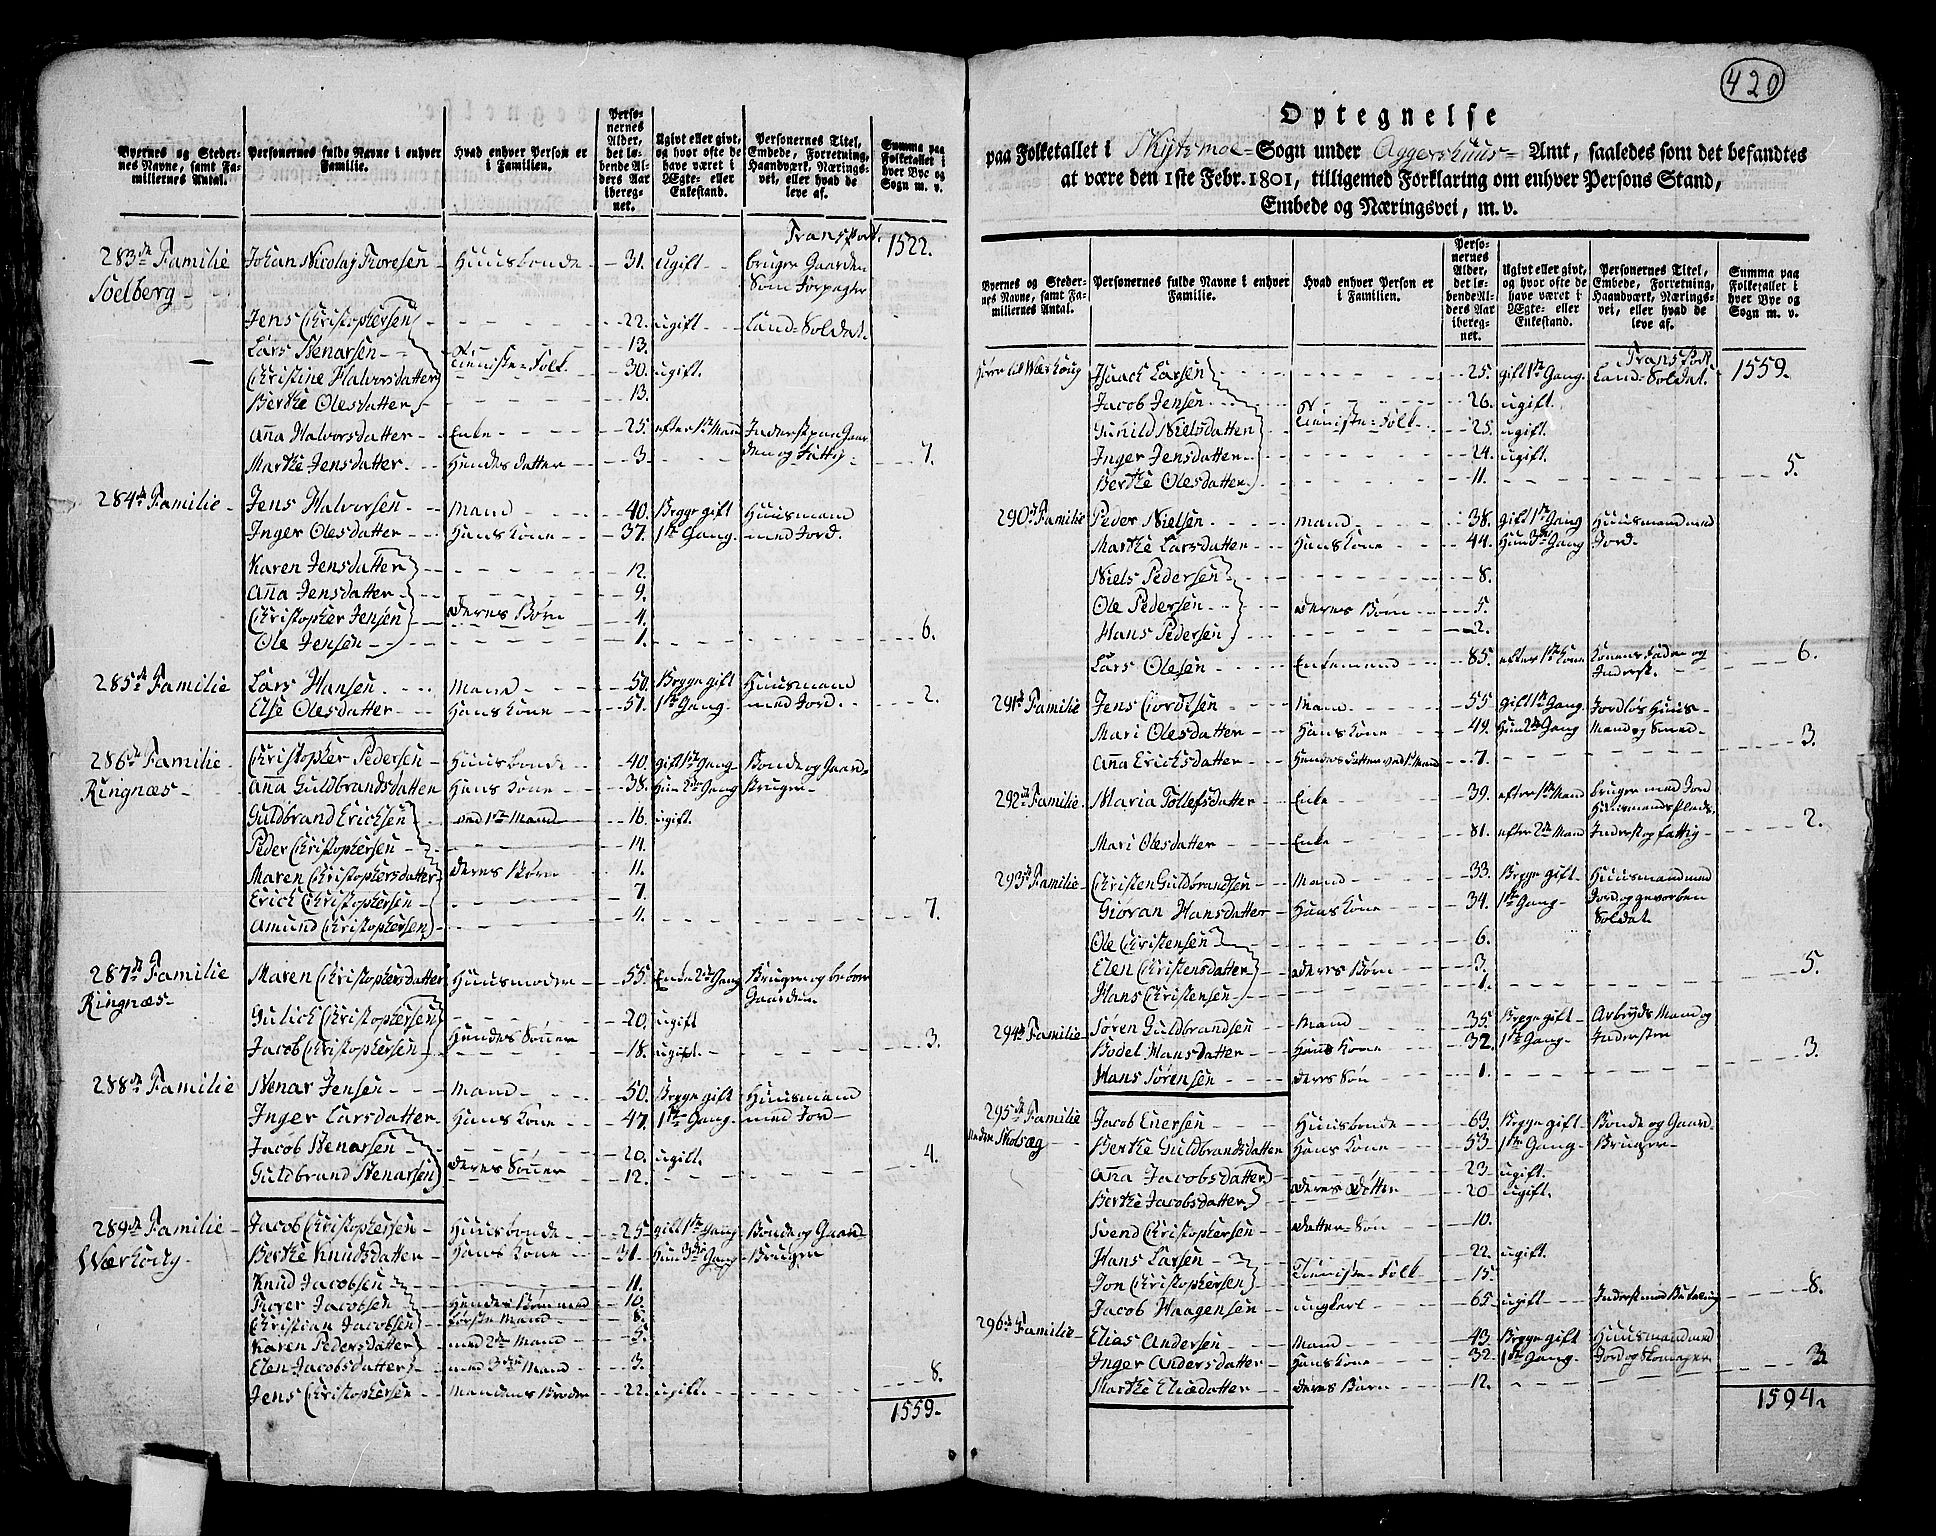 Byernes og Stedernes Navne, samt Familiernes Antal.
Personernes fulde Navne i enhver Familie.
Hvad enhver Person er i Familien.
Personernes Alder, det løbende Alders Aar iberegnet.
Ugivt eller givt, og hvor ofte de have været i Ægte- eller Enkestand.
Personernes Titel, Embede, Forretning, Haandværk, Næringsvei, eller hvad de leve af.
Summa paa Folketallet i hver Bye og Sogn m. v.
Transport. 1522.
283de Familie Johan Nicolaj Thoresen Huusbonde 31. ugift bruger Gaarden
Soelberg som Forpagter
Jens Christophersen 22. ugift Land-Soldat.
Lars Stenarsen 13.
Christine Halvorsdatter Tieniste-Folk 30. ugift.
Berthe Olesdatter 13.
Anna Halvorsdatter Enke 25. efter 1ste Mand Inderst paa Gaar-
Marthe Jensdatter Hendes datter 3. den og Fattig 7.
284de Familie Jens Halvorsen Mand 40. Begge gift Huusmand
Inger Olesdatter Hans Kone 37. 1ste Gang med Jord.
Karen Jensdatter 12.
Anna Jensdatter 9.
Christopher Jensen deres Børn 4.
Ole Jensen 1. 6.
285de Familie Lars Hansen Mand 50. Begge gift Huusmand
Else Olesdatter Hans Kone 51. 1ste Gang med Jord. 2.
286de Familie Christopher Pedersen Huusbonde 40. gift 1ste Gang Bonde og Gaard-
Ringnæs Anna Guldbrandsdatter Hans Kone 38. Hun 2den Gang bruger
Guldbrand Erichsen ved 1ste Mand 16. ugift.
Peder Christophersen 14.
Maren Christophersdatter deres Børn 11.
Erich Christophersen 7.
Amund Christophersen 4. 7.
287de Familie Maren Christophersdatter Huusmoder 55. Enke 2den Gang Bruger og beboer
Ringnæs Gaarden
Gulich Christophersen 20. ugift
Jacob Christophersen Hendes Sønner 18. ugift. 3.
288de Familie Stenar Jensen Mand 50. Begge gift Huusmand
Inger Larsdatter Hans Kone 47. 1ste Gang med Jord
Jacob Stenarsen 20. ugift.
Guldbrand Stenarsen deres Sønner 12. 4.
289de Familie Jacob Christophersen Huusbonde 25. gift 1ste Gang Bonde og Gaard-
Berthe Knudsdatter Hans Kone 31. Hun 3die Gang Bruger
Knud Jacobsen 11.
Thorer Jacobsen Hendes Børn med 10.
Christian Jacobsen første Mand 8.
Karen Pedersdatter med 2den Mand 5.
Elen Jacobsdatter med 3die Mand 3.
Jens Christophersen Mandens Broder 22. ugift. 8.
1559.
420
Optegnelse
paa Folketallet i Skytsmoe Sogn under Aggershuus Amt, saaledes som det befandtes
at være den 1ste Febr. 1801, tilligemed Forklaring om enhver Persons Stand,
Embede og Næringsvei, m. v.
Byernes og Stedernes Navne, samt Familiernes Antal.
Personernes fulde Navne i enhver Familie.
Hvad enhver Person er i Familien.
Personernes Alder, det løbende Alders Aar iberegnet.
Ugivt eller givt, og hvor ofte de have været i Ægte- eller Enkestand.
Personernes Titel, Embede, Forretning, Haandværk, Næringsvei, eller hvad de leve af.
Summa paa Folketallet i hver Bye og Sogn m. v.
Transport 1559.
Isaach Larsen 25. gift 1ste Gang Land-Soldat.
Jacob Jensen 26. ugift.
Gunild Nielsdatter Tieniste-Folk 25. ugift.
Inger Jensdatter 24. ugift.
Berthe Olesdatter 11. 5.
290de Familie Peder Nielsen Mand 38. gift 1ste Gang Huusmand med
Marthe Larsdatter Hans Kone 44. Hun 3die Gang Jord.
Niels Pedersen 8.
Ole Pedersen deres Børn 5.
Hans Pedersen 2.
Lars Olesen Enkemand 85. efter 1ste Kone Konens Fader og
Inderst. 6.
291de Familie Jens Tiordtsen Mand 55 gift 1ste Gang Jordløs Huus-
Mari Olesdatter Hans Kone 49. Hun 2den Gang Mand og Smed
Anna Erichsdatter Hendes datter ved 1ste Mand 7. 3.
292de Familie Maria Tollefsdatter Enke 39. efter 1ste Mand bruger med Jord
Huusmands Plads.
Mari Olesdatter Enke 81. efter 2den Mand Inderst og fattig 2.
293de Familie Christen Guldbrandsen Mand 33. Begge gift Huusmand med
Giøran Hansdatter Hans Kone 34. 1ste Gang Jord og gevorben
Soldat.
Ole Christensen 6.
Elen Christensdatter deres Børn 3.
Hans Christensen 1. 5.
294de Familie Søren Guldbrandsen Mand 35. Begge gift Arbeyds Mand og
Bodel Hansdatter Hans Kone 32. 1ste Gang Inderster
Hans Sørensen deres Søn 1. 3.
295de Familie Jacob Eversen Huusbonde 63. Begge gift Bonde og Gaard-
Berthe Guldbrandsdatter Hans Kone 53. 1ste Gang Bruger
Anna Jacobsdatter 23. ugift
Berthe Jacobsdatter deres døtter 20 ugift.
Svend Christophersen datter-Søn 10.
Hans Larsen 22. ugift.
Jon Christophersen Tieniste-Folk 15.
Jacob Haagensen ungkarl 65 ugift Inderst med Betaling 8.
296de Familie Elias Andersen Mand 43. Begge gift Huusmand med
Inger Andersdatter Hans Kone 32. 1ste Gang Jord og Skomager 3.
Marthe Eliædatter deres Barn 12.
1594.